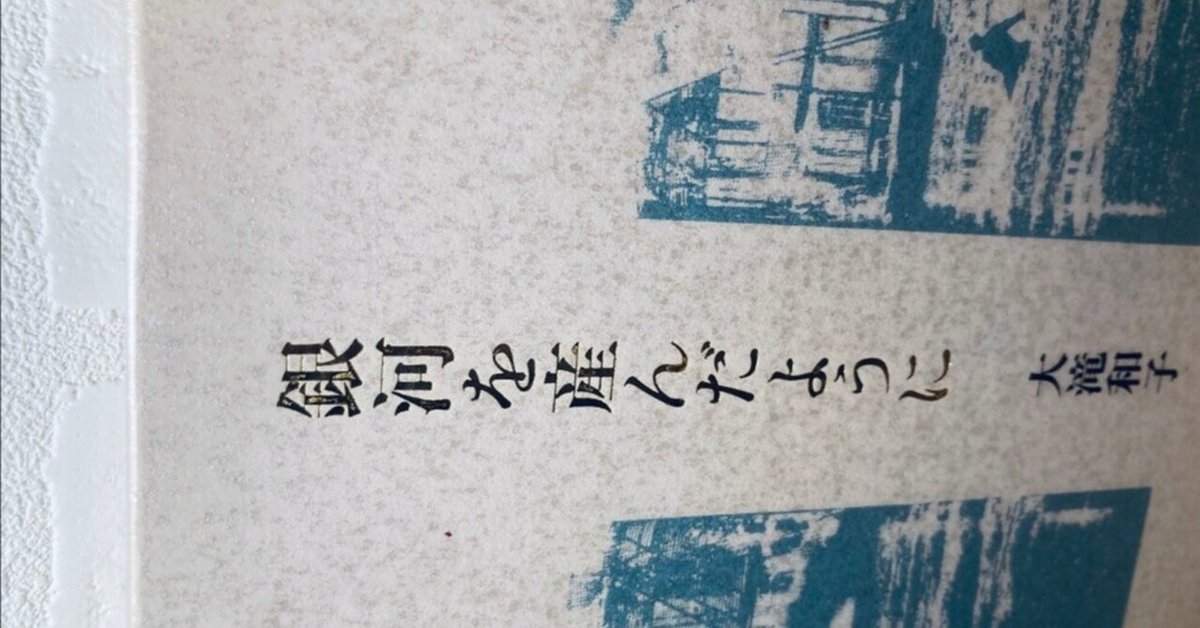 銀河を産んだように
大滝和子